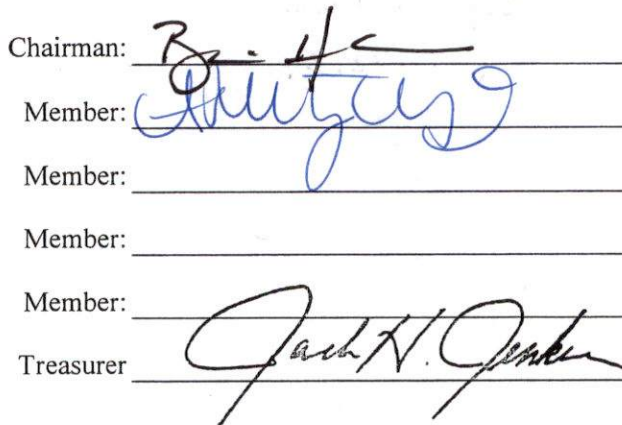 Chairman:
Member:
Member:
Member:
Member:
Treasurer Jack H. Jenkins